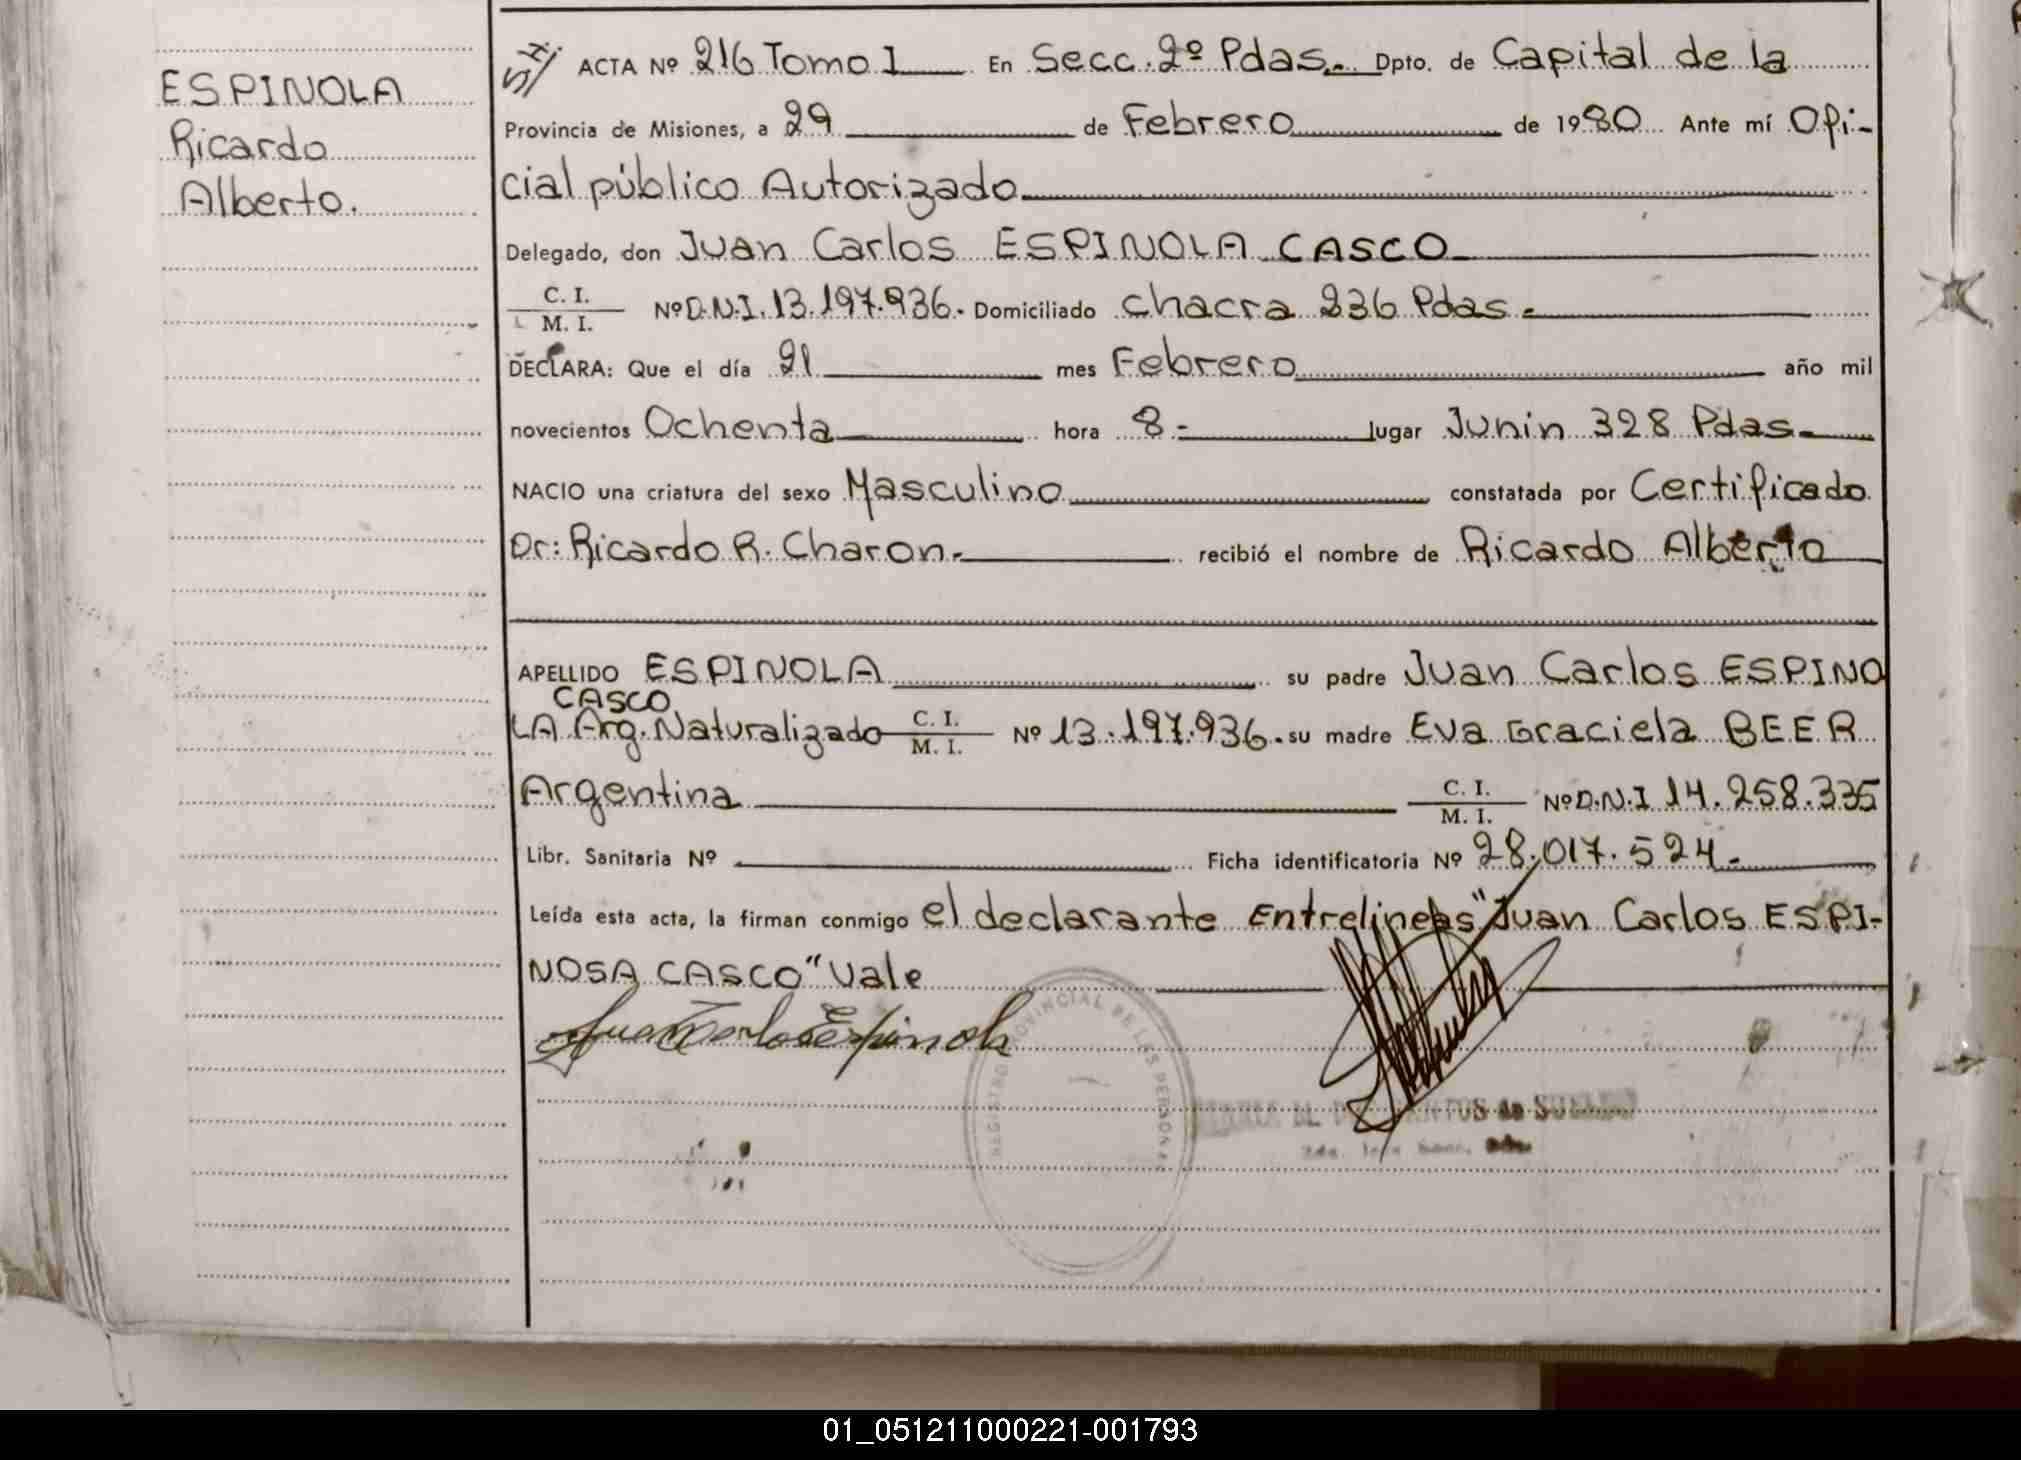 ESPINOLA
Ricardo
Alberto.
ACTA Nº 216 Tomo 1 En Secc. 2º Pdas.- Dpto. de Capital de la
Provincia de Misiones, a 29 de Febrero de 1980 Ante mí Ofi-
cial público Autorizado
Delegado, don Juan Carlos ESPINOLA CASCO
C. I.
M. I.
Nº D.N.I. 13.197.936.- Domiciliado chacra 236 Pdas.-
DECLARA: Que el día 21 mes Febrero año mil
novecientos Ochenta hora 8.- lugar Junin 328 Pdas.-
NACIO una criatura del sexo Masculino constatada por Certificado
Dr: Ricardo R. Charon.- recibió el nombre de Ricardo Alberto
APELLIDO ESPINOLA su padre Juan Carlos ESPINO
CASCO
LA Arg. Naturalizado C. I. M. I. Nº 13.197.936. su madre Eva Graciela BEER
Argentina C. I. M. I. Nº D.N.I 14.258.335
Libr. Sanitaria Nº Ficha identificatoria Nº 28.017.524.-
Leída esta acta, la firman conmigo el declarante Entrelineas "Juan Carlos ESPI-
NOSA CASCO" Vale
Juan Carlos Espinola
REGISTRO PROVINCIAL DE LAS PERSONAS
01_051211000221-001793